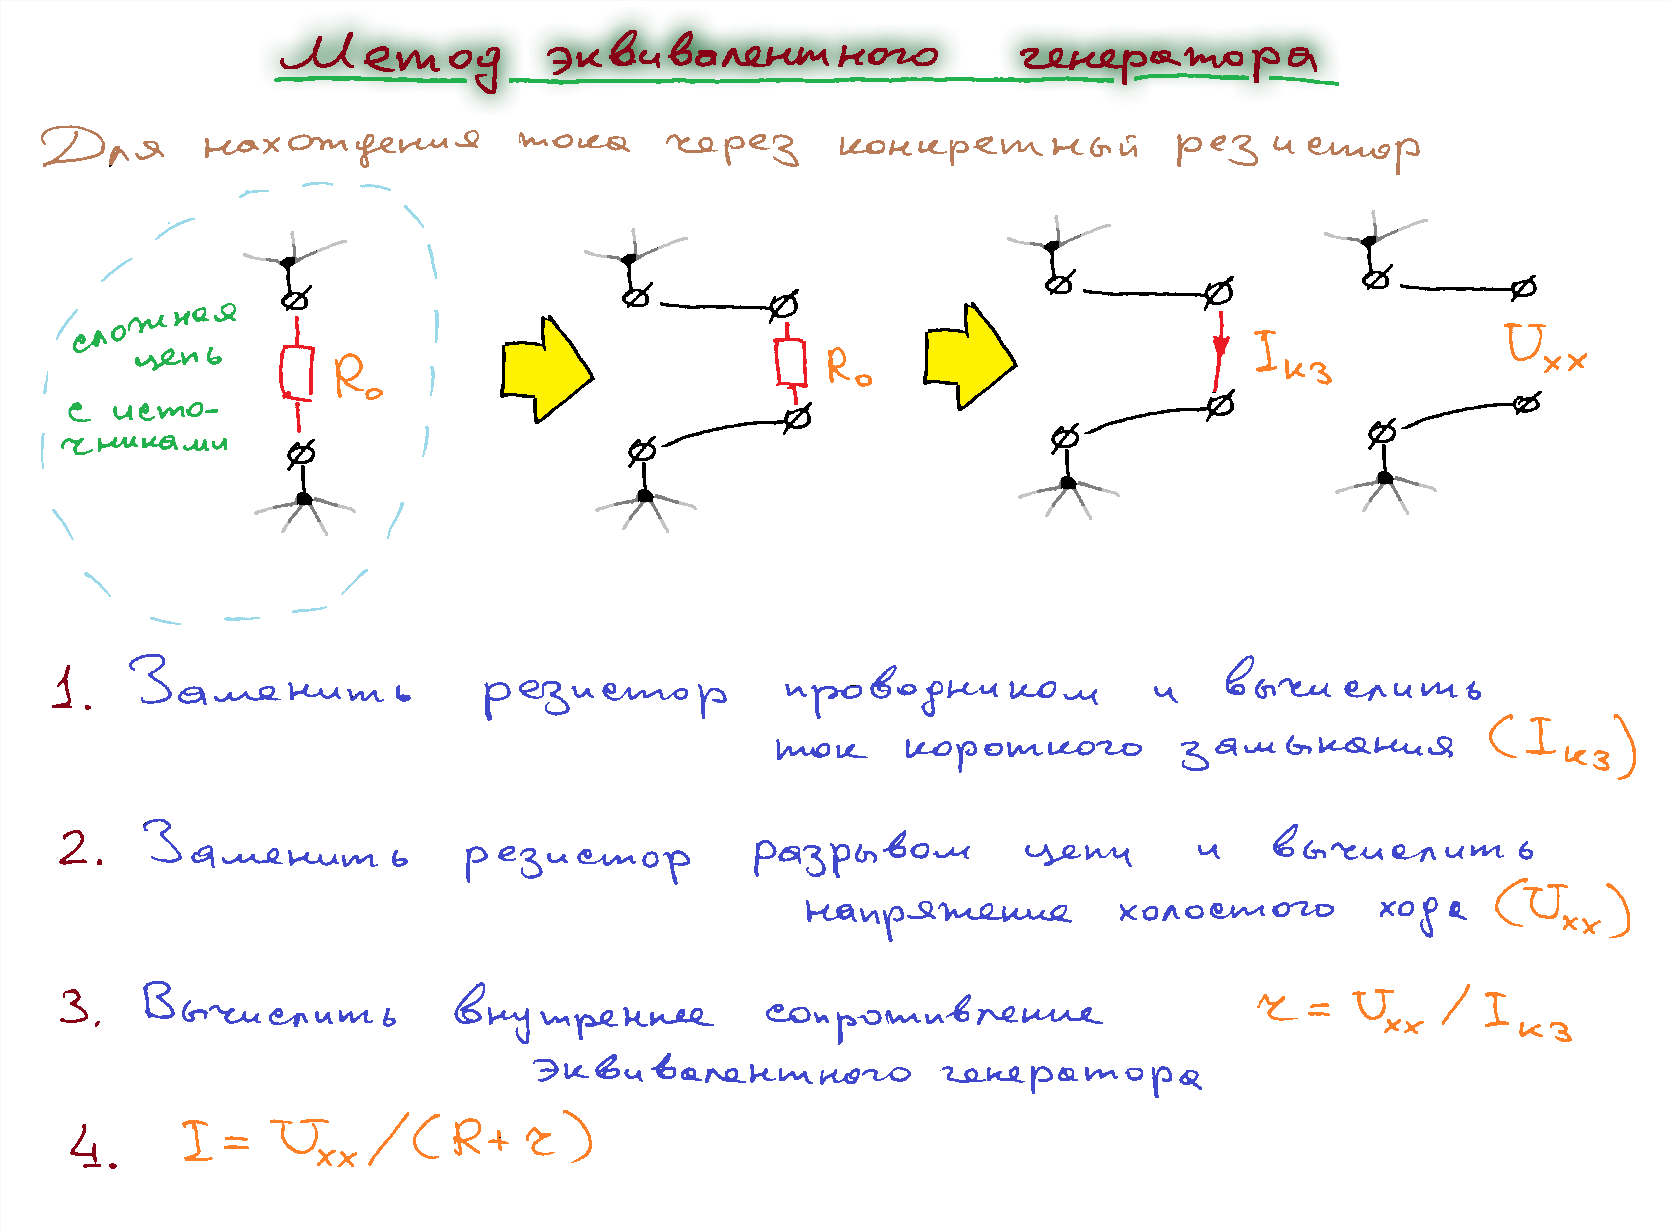 Метод эквивалентного генератора
Для нахождения тока через конкретный резистор
сложная
цепь
с исто-
чниками
R₀
R₀
Iкз
Uхх
1. Заменить резистор проводником и вычислить
ток короткого замыкания (Iкз)
2. Заменить резистор разрывом цепи и вычислить
напряжение холостого хода (Uхх)
3. Вычислить внутреннее сопротивление r = Uхх / Iкз
эквивалентного генератора
4. I = Uхх / (R + r)